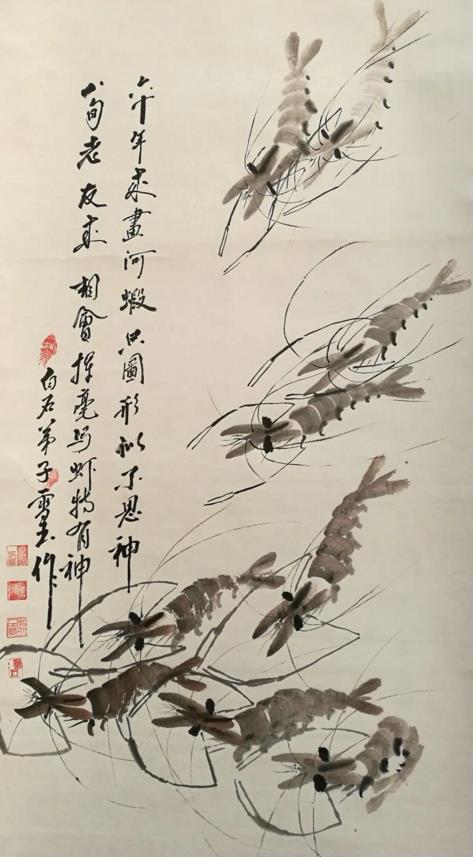 六十年来画河蝦只圖形似不思神
八旬老友来相會揮毫写虾特有神
白石弟子雪 作